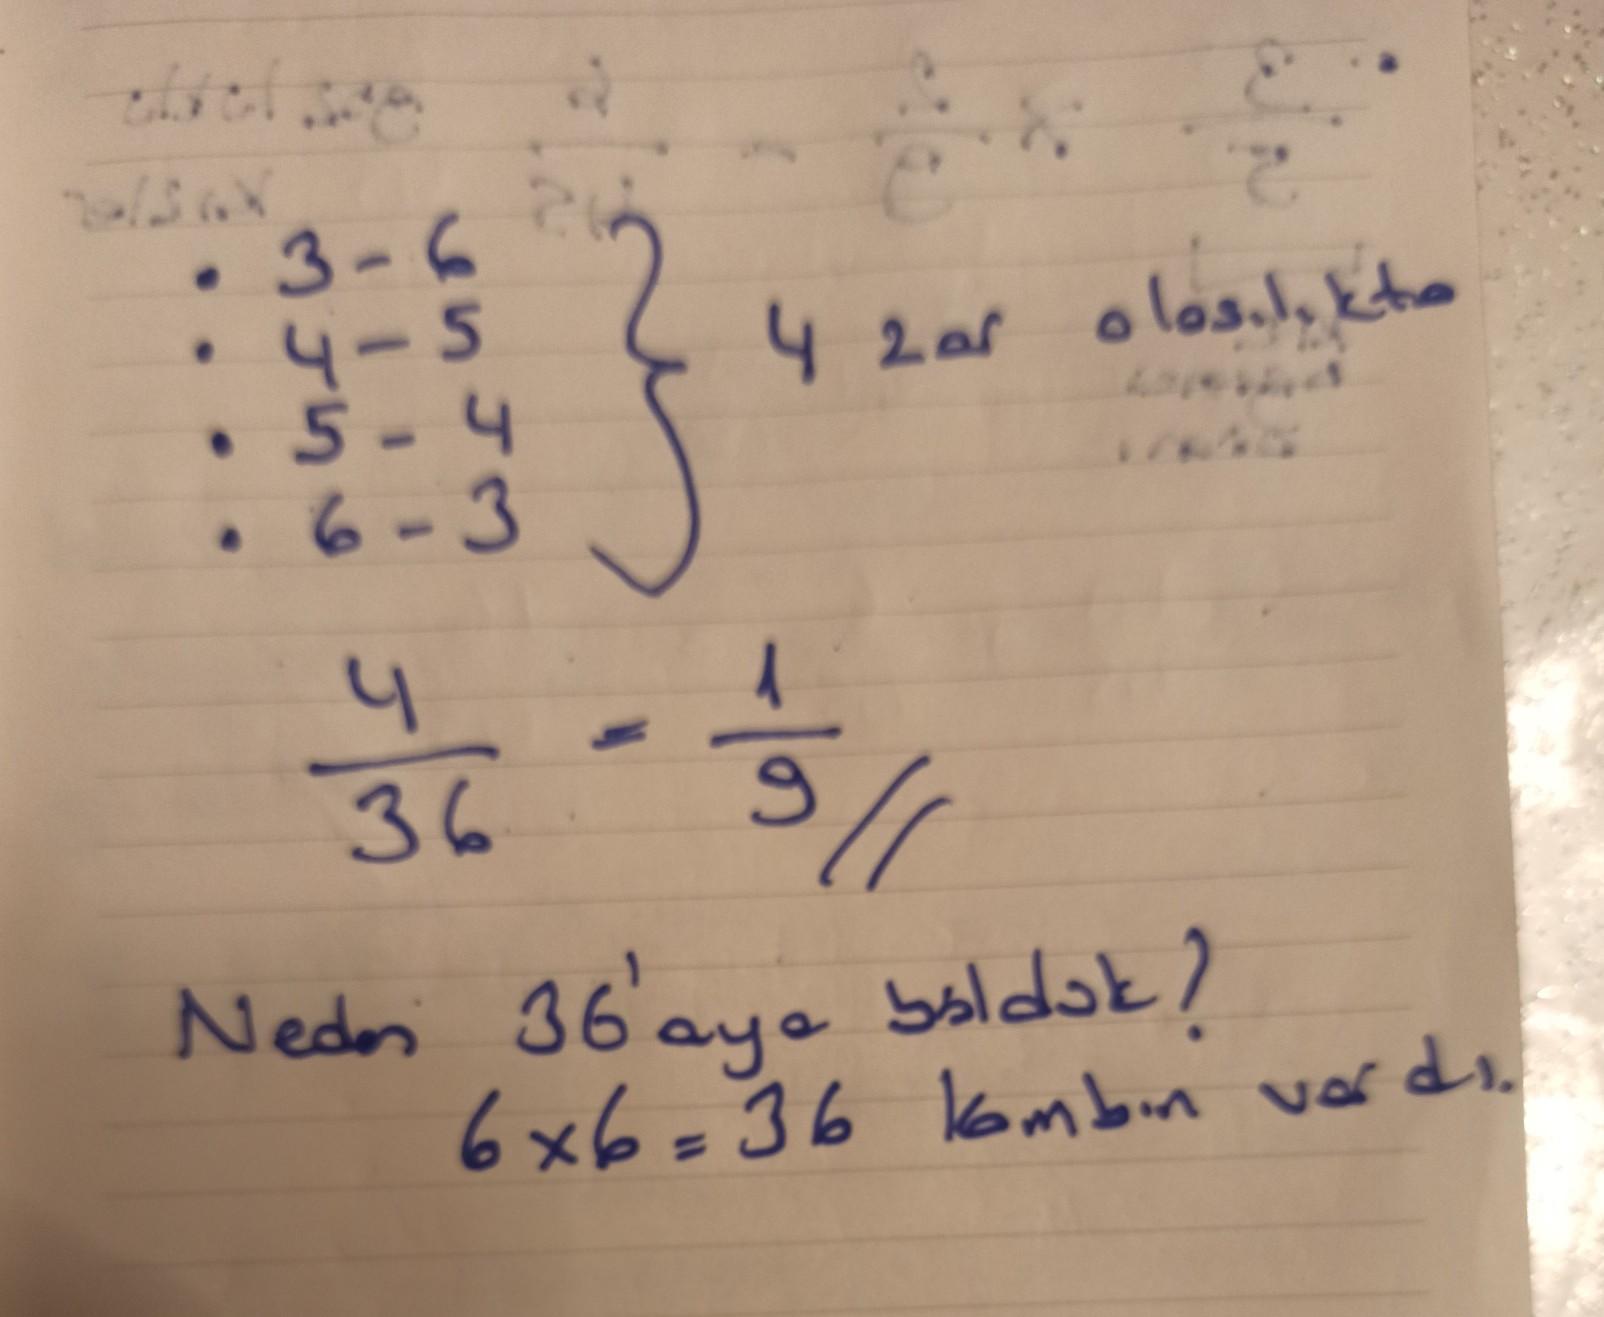 • 3 - 6
• 4 - 5
• 5 - 4
• 6 - 3
4 zar olasılıkta
4/36 = 1/9 //
Neden 36'aya böldük?
6x6 = 36 kombin vardı.